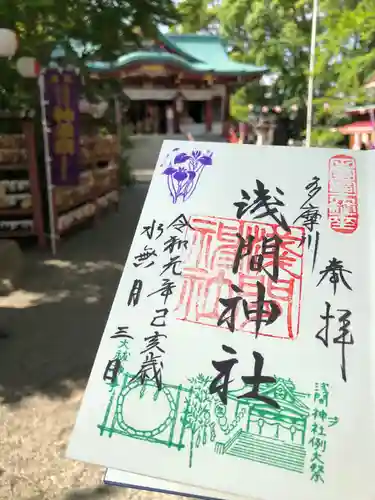 多摩川
奉拝
浅間神社
令和元年己亥歳
水無月
三日
浅間神社例大祭
大祓